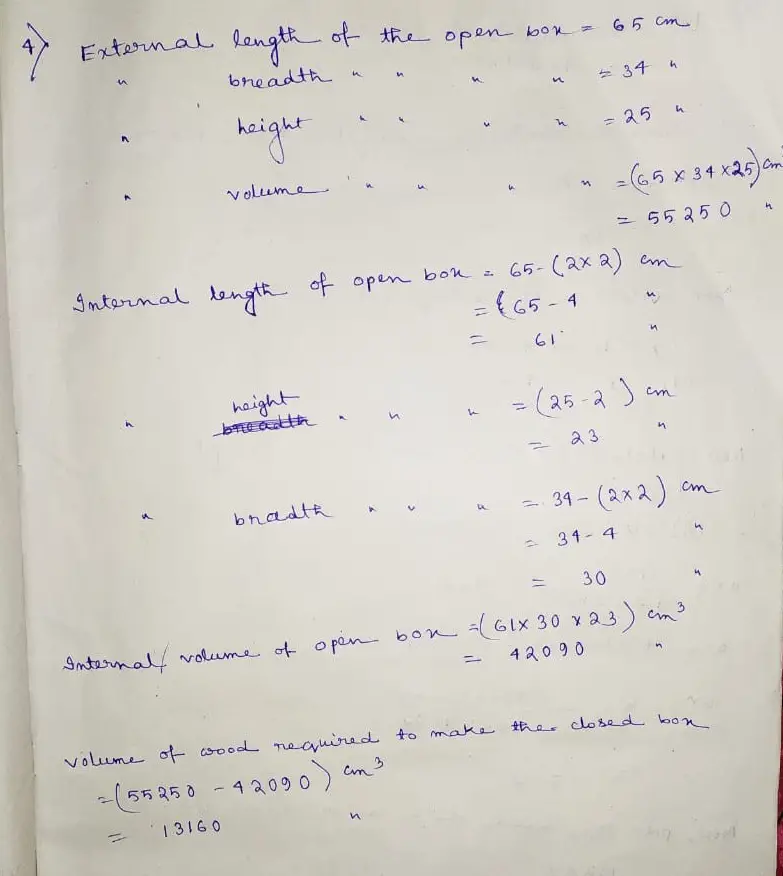 4) External length of the open box = 65 cm
" breadth " " " " = 34 "
" height " " " " = 25 "
" volume " " " " = (65 x 34 x25) cm
= 55250 "
Internal length of open box = 65-(2x2) cm
= {65-4 "
= 61 "
" height breadth " " " = (25-2) cm
= 23 "
" bradth " " " = 34-(2x2) cm
= 34-4 "
= 30 "
Internal volume of open box =(61x 30 x 23) cm³
= 42090 "
volume of wood required to make the closed box
=(55250 - 42090) cm³
= 13160 "